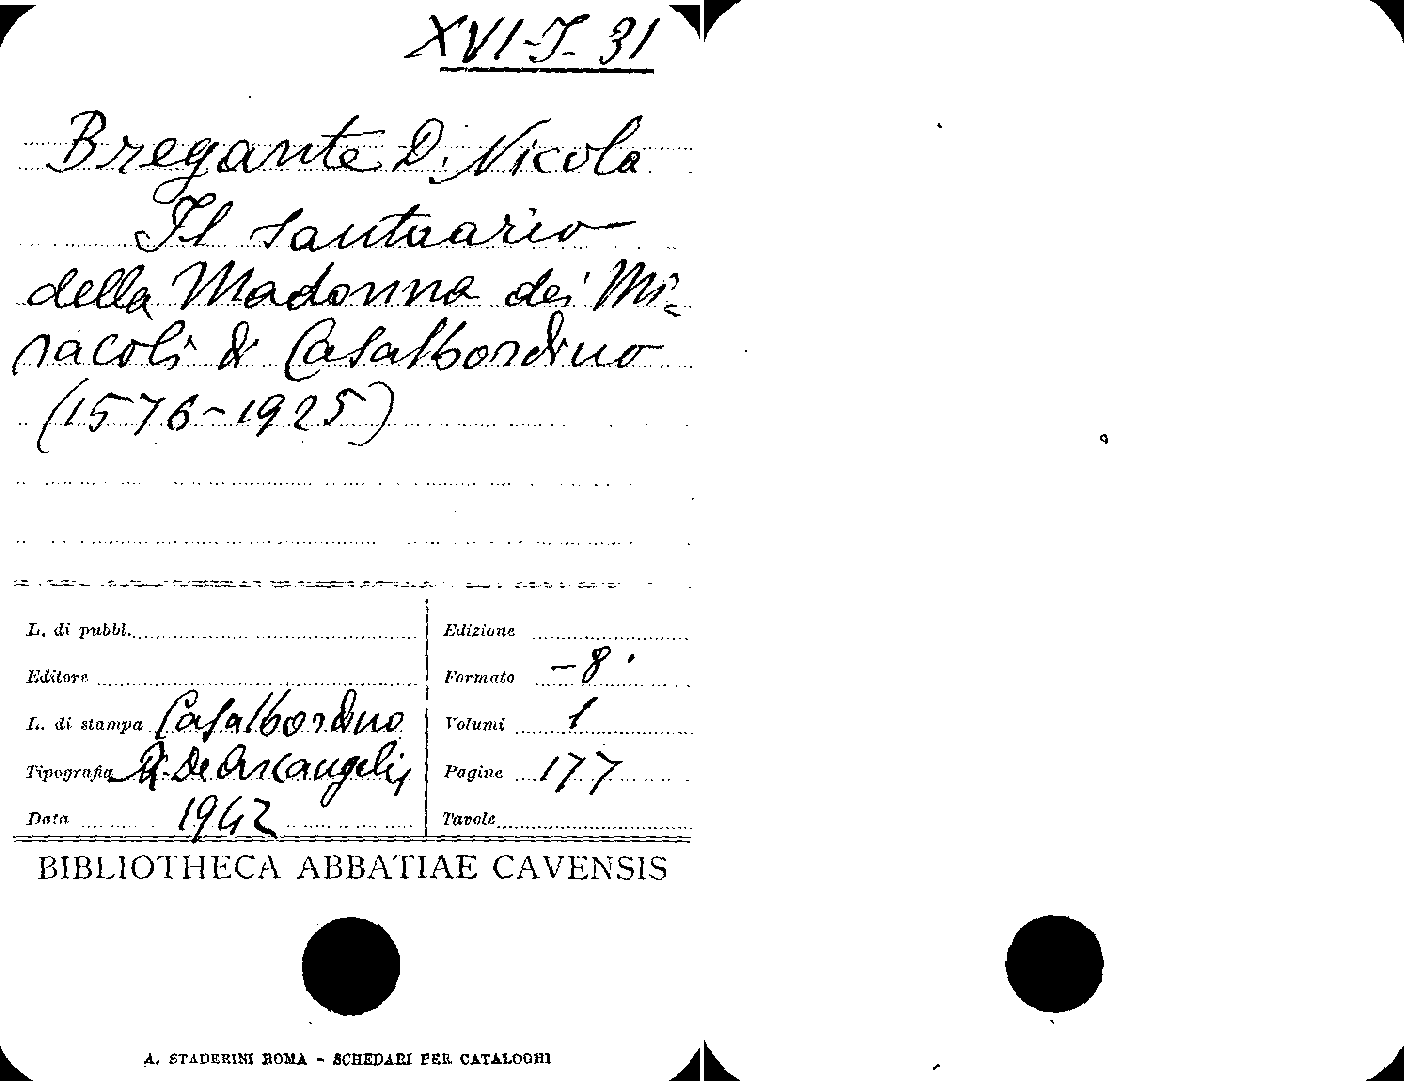 XVI-J-31
Bregante D. Nicola
Il santuario
della Madonna dei Mi-
racoli di Casalbordino
(1576-1925)
L. di pubbl.
Edizione
Editore
Formato -8°
L. di stampa Casalbordino
Volumi 1
Tipografia N. De Arcangelis
Pagine 177
Data 1942
Tavole
BIBLIOTHECA ABBATIAE CAVENSIS
A. STADERINI ROMA - SCHEDARI PER CATALOGHI